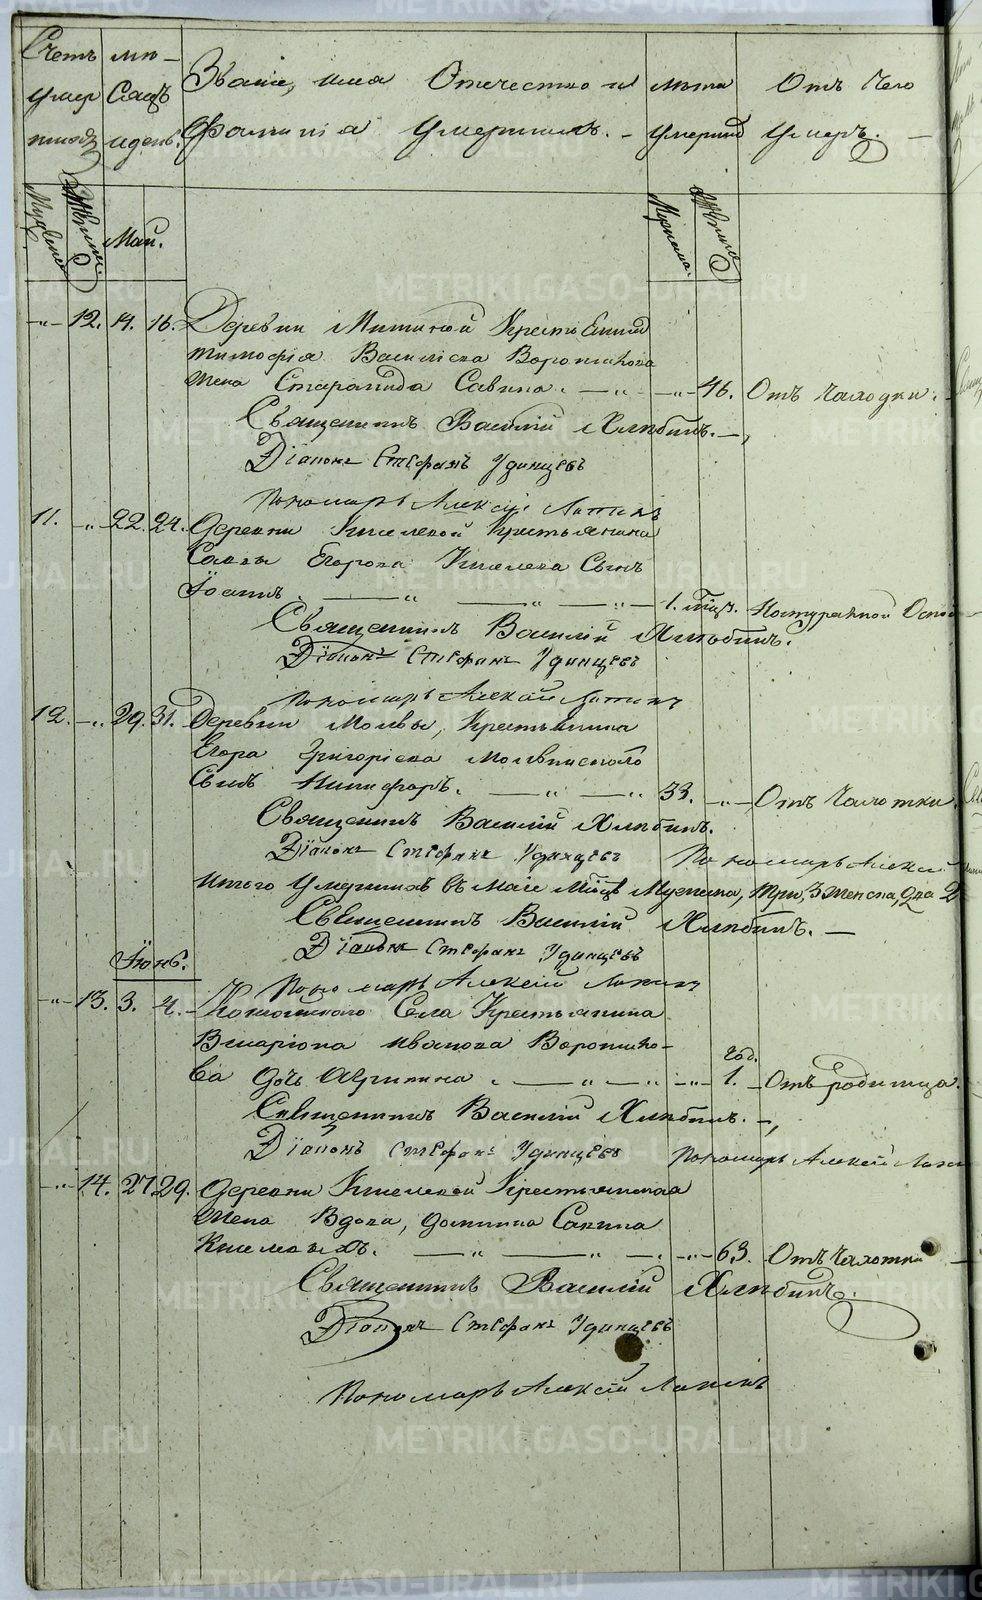 Счетъ мѣ-
умер Сяцъ Званіе, имя Отечество и лѣта Отъ Чего
шихъ идень. Фамилія умершихъ. - умерш умеръ. -
Мужеска Женска Май. Мужеска Женска
-"- 12. 14. 16. Деревни Митиной Крестьянина
Тимофея Васильева Воротникова
жена Старапида Савина. -"- 46. Отъ чахотки.
Священникъ Василій Хлѣбинъ.
Діаконъ Стефанъ Удинцевъ
Пономарь Алексѣй Лапинъ
11. -"- 22. 24. Деревни Киселевой Крестьянина
Саввы Егорова Киселева Сынъ
Іоаннъ. - " - " - " - 1. мѣц. Натуральной Оспы
Священникъ Василій Хлѣбинъ.
Діаконъ Стефанъ Удинцевъ
Пономарь Алексѣй Лапинъ
12. -"- 29. 31. Деревни Молвы, Крестьянина
Егора Григоріева Молвинского
Сынъ Никифоръ. - " - " 33. -"- Отъ Чахотки.
Священникъ Василій Хлѣбинъ.
Діаконъ Стефанъ Удинцевъ Пономарь Алексѣй
Итого Умершихъ въ маѣ мѣцѣ Мужеска, три, 3 Женска, два 2
Священникъ Василій Хлѣбинъ. -
Діаконъ Стефанъ Удинцевъ
Іюнь.
Пономарь Алексѣй Лапинъ
-"- 13. 3. 4. Села Крестьянина
Иларіона Иванова Воротнико-
год.
ва Дочь Агрипина. - " - " -"- 1. Отъ родимца.
Священникъ Василій Хлѣбинъ. -
Діаконъ Стефанъ Удинцевъ Пономарь Алексѣй Лапин
-"- 14. 27. 29. Деревни Киселевой Крестьянская
Жена Вдова, Домнина Савина
Киселевыхъ. - " - " - -"- 63. Отъ Чахотки
Священникъ Василій Хлѣбинъ.
Діаконъ Стефанъ Удинцевъ
Пономарь Алексѣй Лапинъ
METRIKI.GASO-URAL.RU